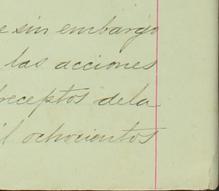 e sin embargo
las acciones
preceptos dela
il ochocientos